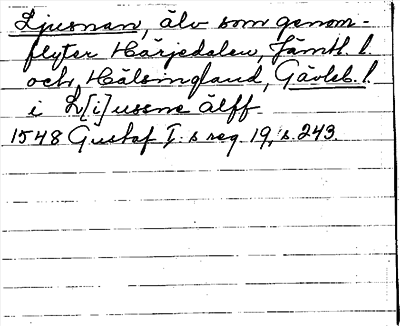 Ljusnan, älv som genom-
flyter Härjedalen, Jämtl. l.
och Hälsingland, Gävleb. l.
i L[i]ussne älff.
1548 Gustaf I:s reg. 19, s. 243.